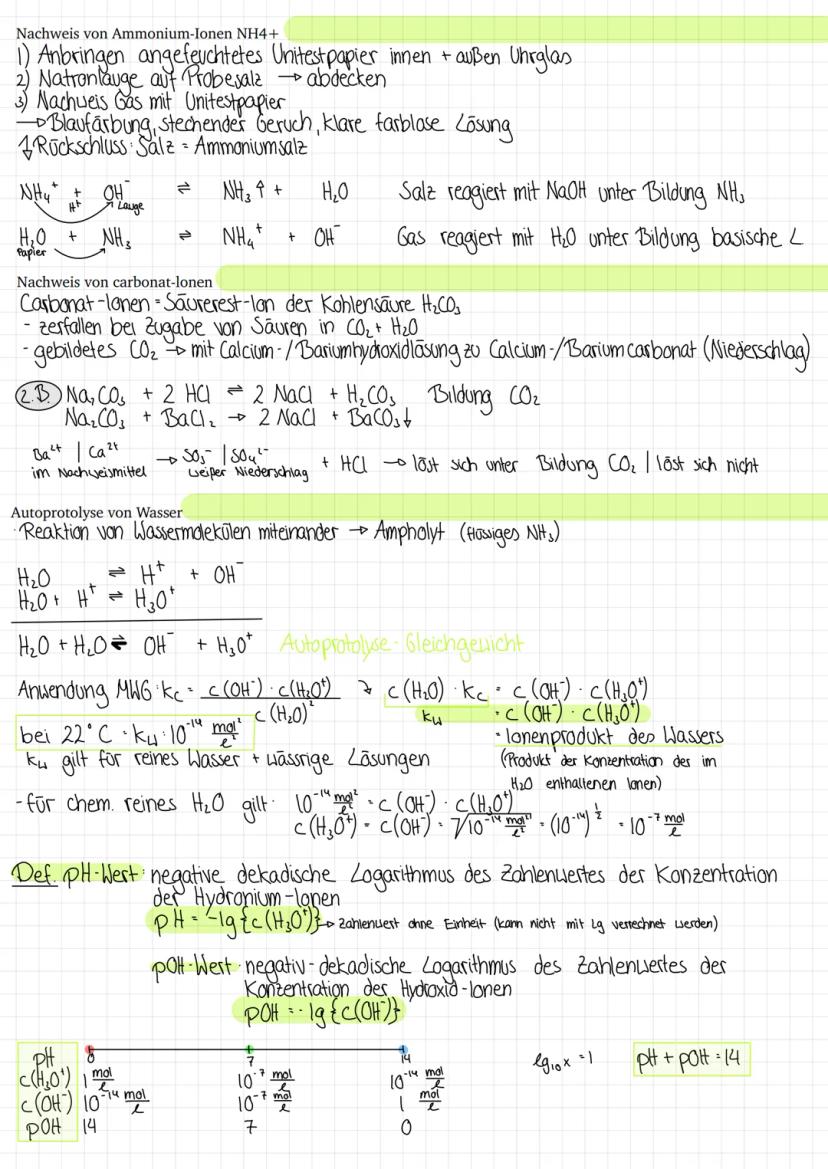 Nachweis von Ammonium-Ionen NH4+
1) Anbringen angefeuchtetes Unitestpapier innen + außen Uhrglas
2) Natronlauge auf Probesalz → abdecken
3) Nachweis Gas mit Unitestpapier
→ Blaufärbung, stechender Geruch, klare farblose Lösung
↯ Rückschluss: Salz = Ammoniumsalz
NH₄⁺ + OH⁻ ⇌ NH₃ ↑ + H₂O Salz reagiert mit NaOH unter Bildung NH₃
H⁺ Lauge
H₂O + NH₃ ⇌ NH₄⁺ + OH⁻ Gas reagiert mit H₂O unter Bildung basische L
Papier
Nachweis von carbonat-Ionen
Carbonat-Ionen = Säurerest-Ion der Kohlensäure H₂CO₃
- zerfallen bei Zugabe von Säuren in CO₂ + H₂O
- gebildetes CO₂ → mit Calcium-/Bariumhydroxidlösung zu Calcium-/Bariumcarbonat (Niederschlag)
z.B. Na₂CO₃ + 2 HCl ⇌ 2 NaCl + H₂CO₃ Bildung CO₂
Na₂CO₃ + BaCl₂ → 2 NaCl + BaCO₃↓
Ba²⁺ | Ca²⁺ → SO₃⁻ | SO₄²⁻ + HCl → löst sich unter Bildung CO₂ | löst sich nicht
im Nachweismittel weißer Niederschlag
Autoprotolyse von Wasser
· Reaktion von Wassermolekülen miteinander → Ampholyt (flüssiges NH₃)
H₂O ⇌ H⁺ + OH⁻
H₂O + H⁺ ⇌ H₃O⁺
H₂O + H₂O ⇌ OH⁻ + H₃O⁺ Autoprotolyse-Gleichgewicht
Anwendung MWG: Kc = c(OH⁻) · c(H₃O⁺) / c(H₂O)² ↷ c(H₂O) · Kc = c(OH⁻) · c(H₃O⁺)
Kw = c(OH⁻) · c(H₃O⁺)
bei 22°C · Kw · 10⁻¹⁴ mol²/l² = Ionenprodukt des Wassers
Kw gilt für reines Wasser + wässrige Lösungen (Produkt der Konzentration des im
H₂O enthaltenen Ionen)
- für chem. reines H₂O gilt: 10⁻¹⁴ mol²/l² = c(OH⁻) · c(H₃O⁺)
c(H₃O⁺) = c(OH⁻) = √10⁻¹⁴ mol²/l² = (10⁻¹⁴)^½ = 10⁻⁷ mol/l
Def. pH-Wert: negative dekadische Logarithmus des Zahlenwertes der Konzentration
der Hydronium-Ionen
pH = -lg{c(H₃O⁺)} → Zahlenwert ohne Einheit (kann nicht mit lg verrechnet werden)
pOH-Wert: negativ-dekadische Logarithmus des Zahlenwertes der
Konzentration der Hydroxid-Ionen
pOH = -lg{c(OH⁻)}
pH 0 7 14 lg₁₀x = 1 pH + pOH = 14
c(H₃O⁺) 1 mol/l 10⁻⁷ mol/l 10⁻¹⁴ mol/l
c(OH⁻) 10⁻¹⁴ mol/l 10⁻⁷ mol/l 1 mol/l
pOH 14 7 0